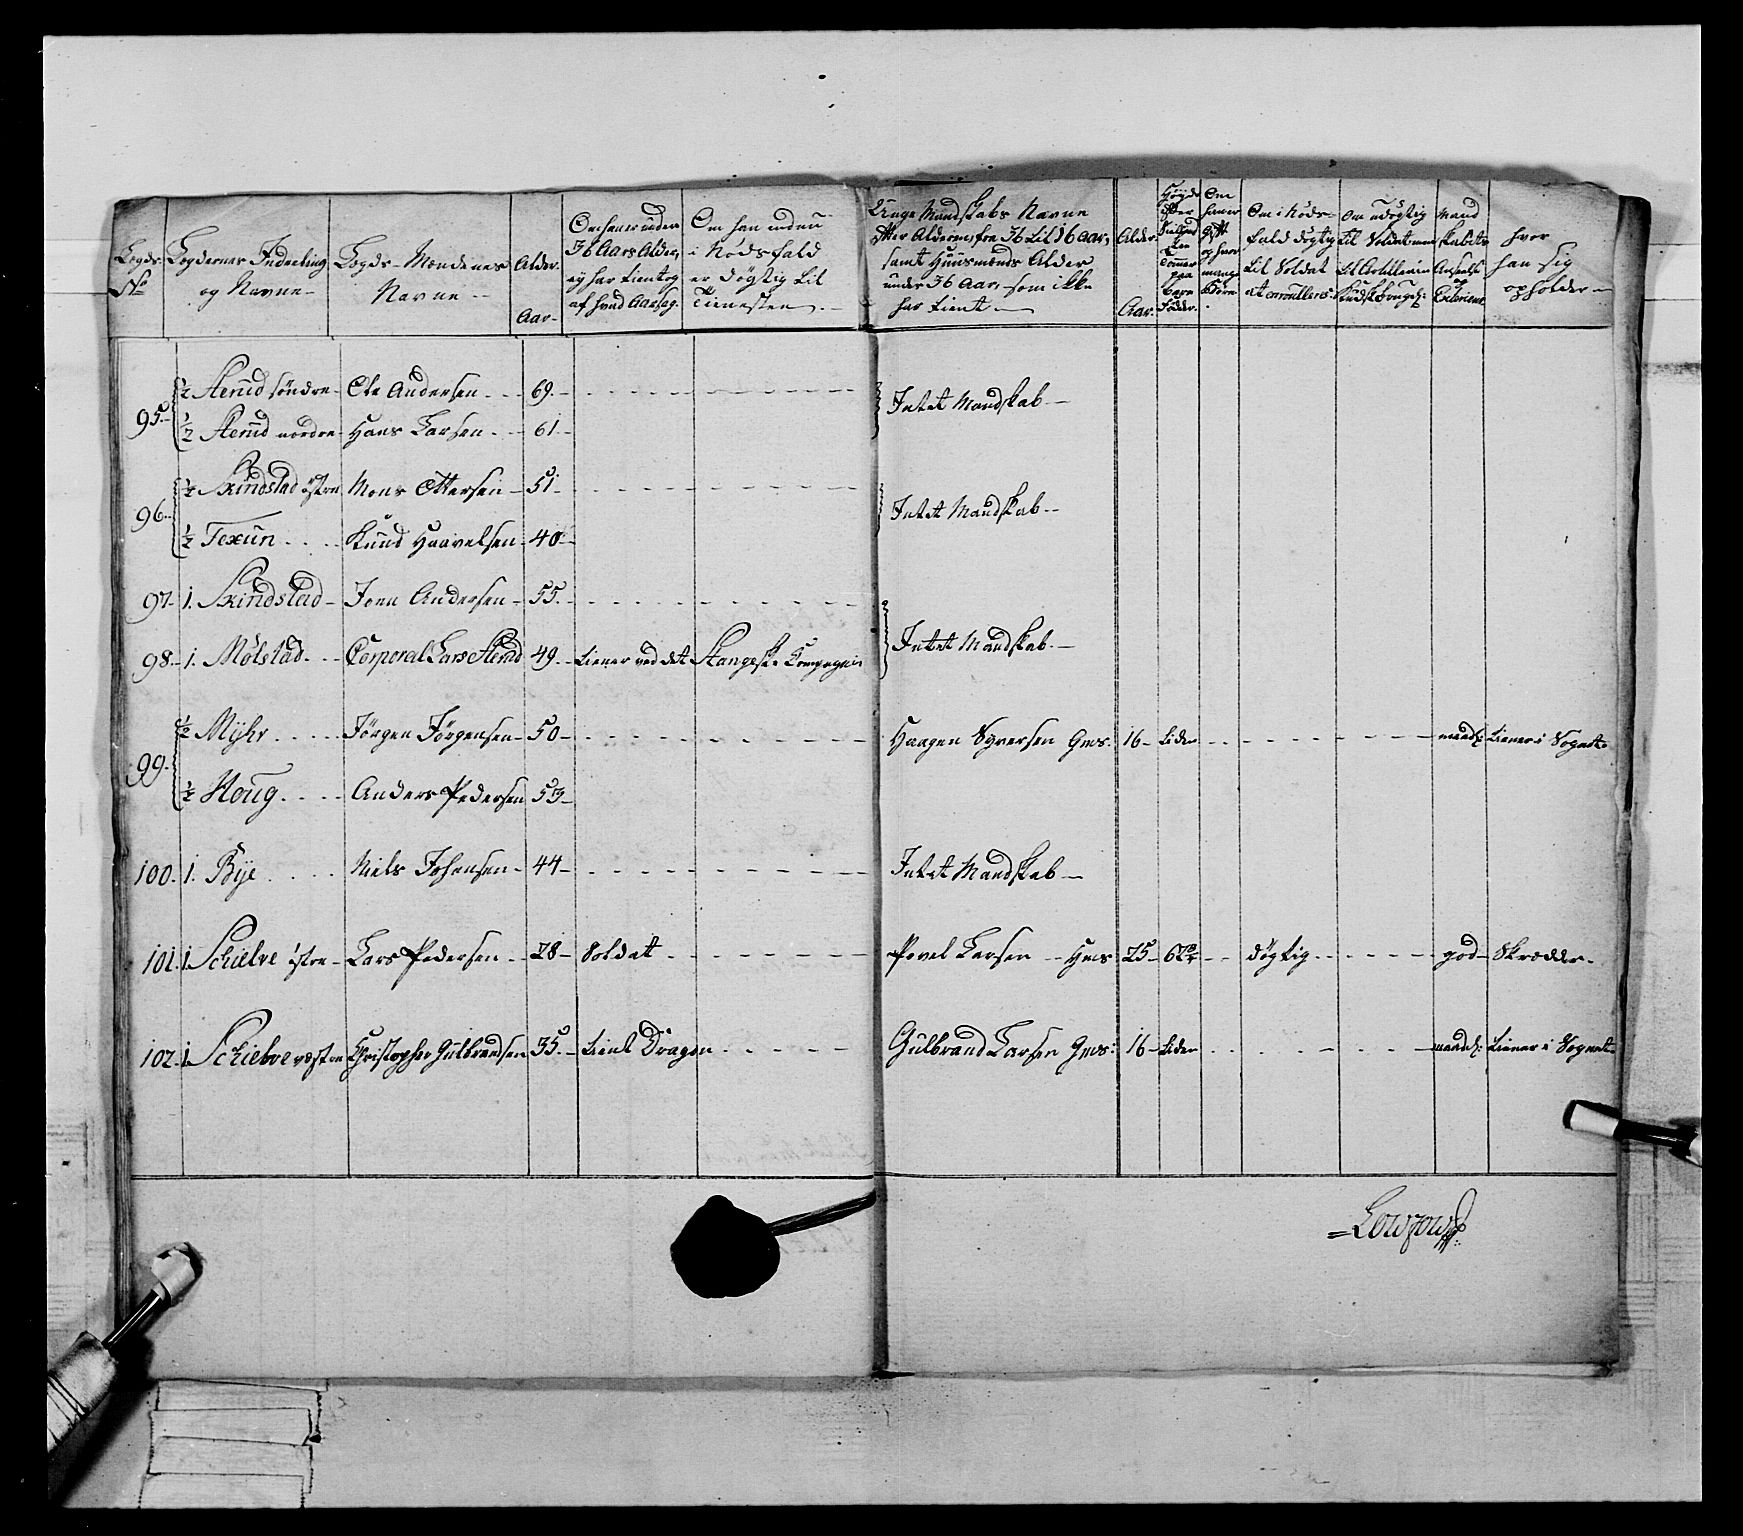 Legds No
Legdernes Inddeeling og Navne
Legds-Mændenes Navne
Alder Aar
Om han er under 36 Aars Alder, ej har tient og af hvad Aarsag
Om han endnu i Nødsfald er dögtig til Tienesten
Unge Mandskabs Navne efter Alderen, fra 36 til 16 Aar, samt Huusmænds Alder under 36 Aar, som ikke har tient
Alder Aar
Om han er gift og hvor mange Børn
Om i Nødsfald dögtig til Soldat at enroullere
Om udögtig til Soldat men til
Mandskabets Anseelse og Exterieur
hvor han sig opholder
95. ½ Aerud söndre Ole Andersen 69 Intet Mandskab
½ Aerud nordre Hans Larsen 61
96. ½ Skindstad östre Mons Ottersen 51 Intet Mandskab
½ Texun Knud Haavelsen 40
97. 1. Skindstad Joen Andersen 55
98. 1. Mölstad Corporal Lars Aerud 49 tiener ved det Stangeske Compagnie Intet Mandskab
99. ½ Myhr Jörgen Jörgensen 50 Haagen Syversen Gms. 16 liden maadel: tiener i Sognet
½ Houg Anders Pedersen 53
100. 1. Bye Niels Johansen 44 Intet Mandskab
101. 1. Schielve östre Lars Pedersen 28 Soldat Povel Larsen Hms 25 dögtig god Skrædder
102. 1. Schielve vestre Christopher Gulbrandsen 35 tient Dragon Gulbrand Larsen Gms: 16 liden maadel: tiener i Sognet
Lowzow